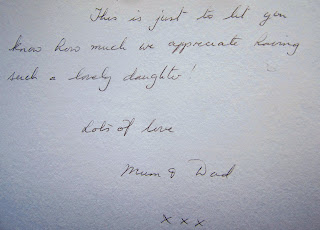 This is just to let you
know how much we appreciate having
such a lovely daughter!
Lots of love
Mum & Dad
x x x